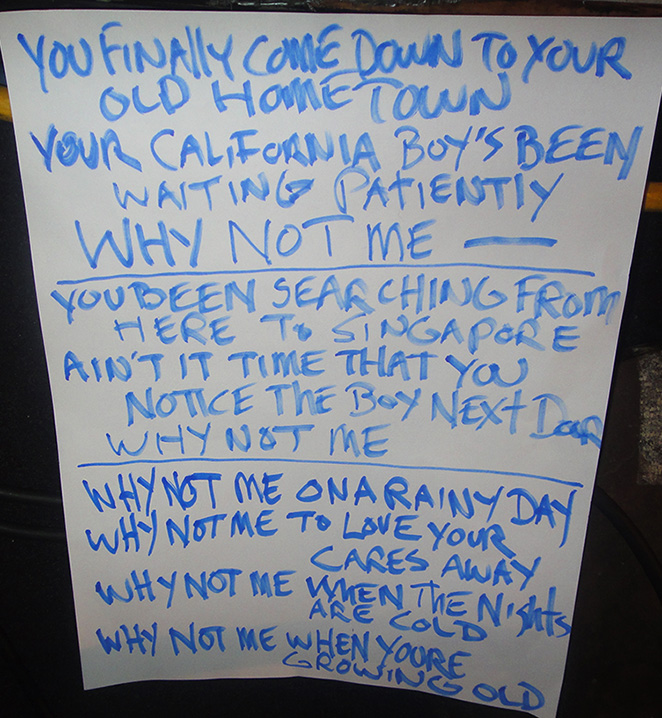 YOU FINALLY COME DOWN TO YOUR
OLD HOMETOWN
YOUR CALIFORNIA BOY'S BEEN
WAITING PATIENTLY
WHY NOT ME —
YOU BEEN SEARCHING FROM
HERE TO SINGAPORE
AIN'T IT TIME THAT YOU
NOTICE THE BOY NEXT DOOR
WHY NOT ME
WHY NOT ME ON A RAINY DAY
WHY NOT ME TO LOVE YOUR
CARES AWAY
WHY NOT ME WHEN THE NIGHTS
ARE COLD
WHY NOT ME WHEN YOORE
GROWING OLD